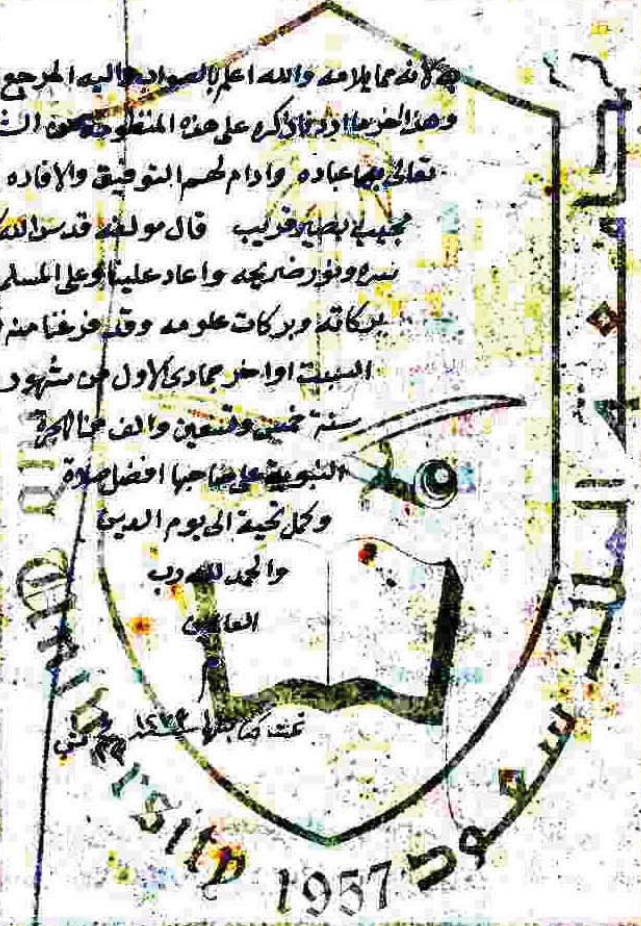 لانه مما يلامه والله اعلم بالصواب واليه المرجع
وهذا اخر ما اردنا ذكره على هذه المنظومة
تعالى بها عباده وادام لهم التوفيق والافاده
مجيب بصير قريب قال مولفه قدس الله
سره ونور ضريحه واعاد علينا وعلى المسلم
بركاته وبركات علومه وقد فرغنا منه
السبت اواخر جمادى الاول من شهور
سنة خمس وتسعين والف من الهجرة
النبوية على صاحبها افضل صلاة
وكمل تحية الى يوم الدين
والحمد لله رب
العالمين
تمت كتابتها
جامعة الملك سعود
University 1957